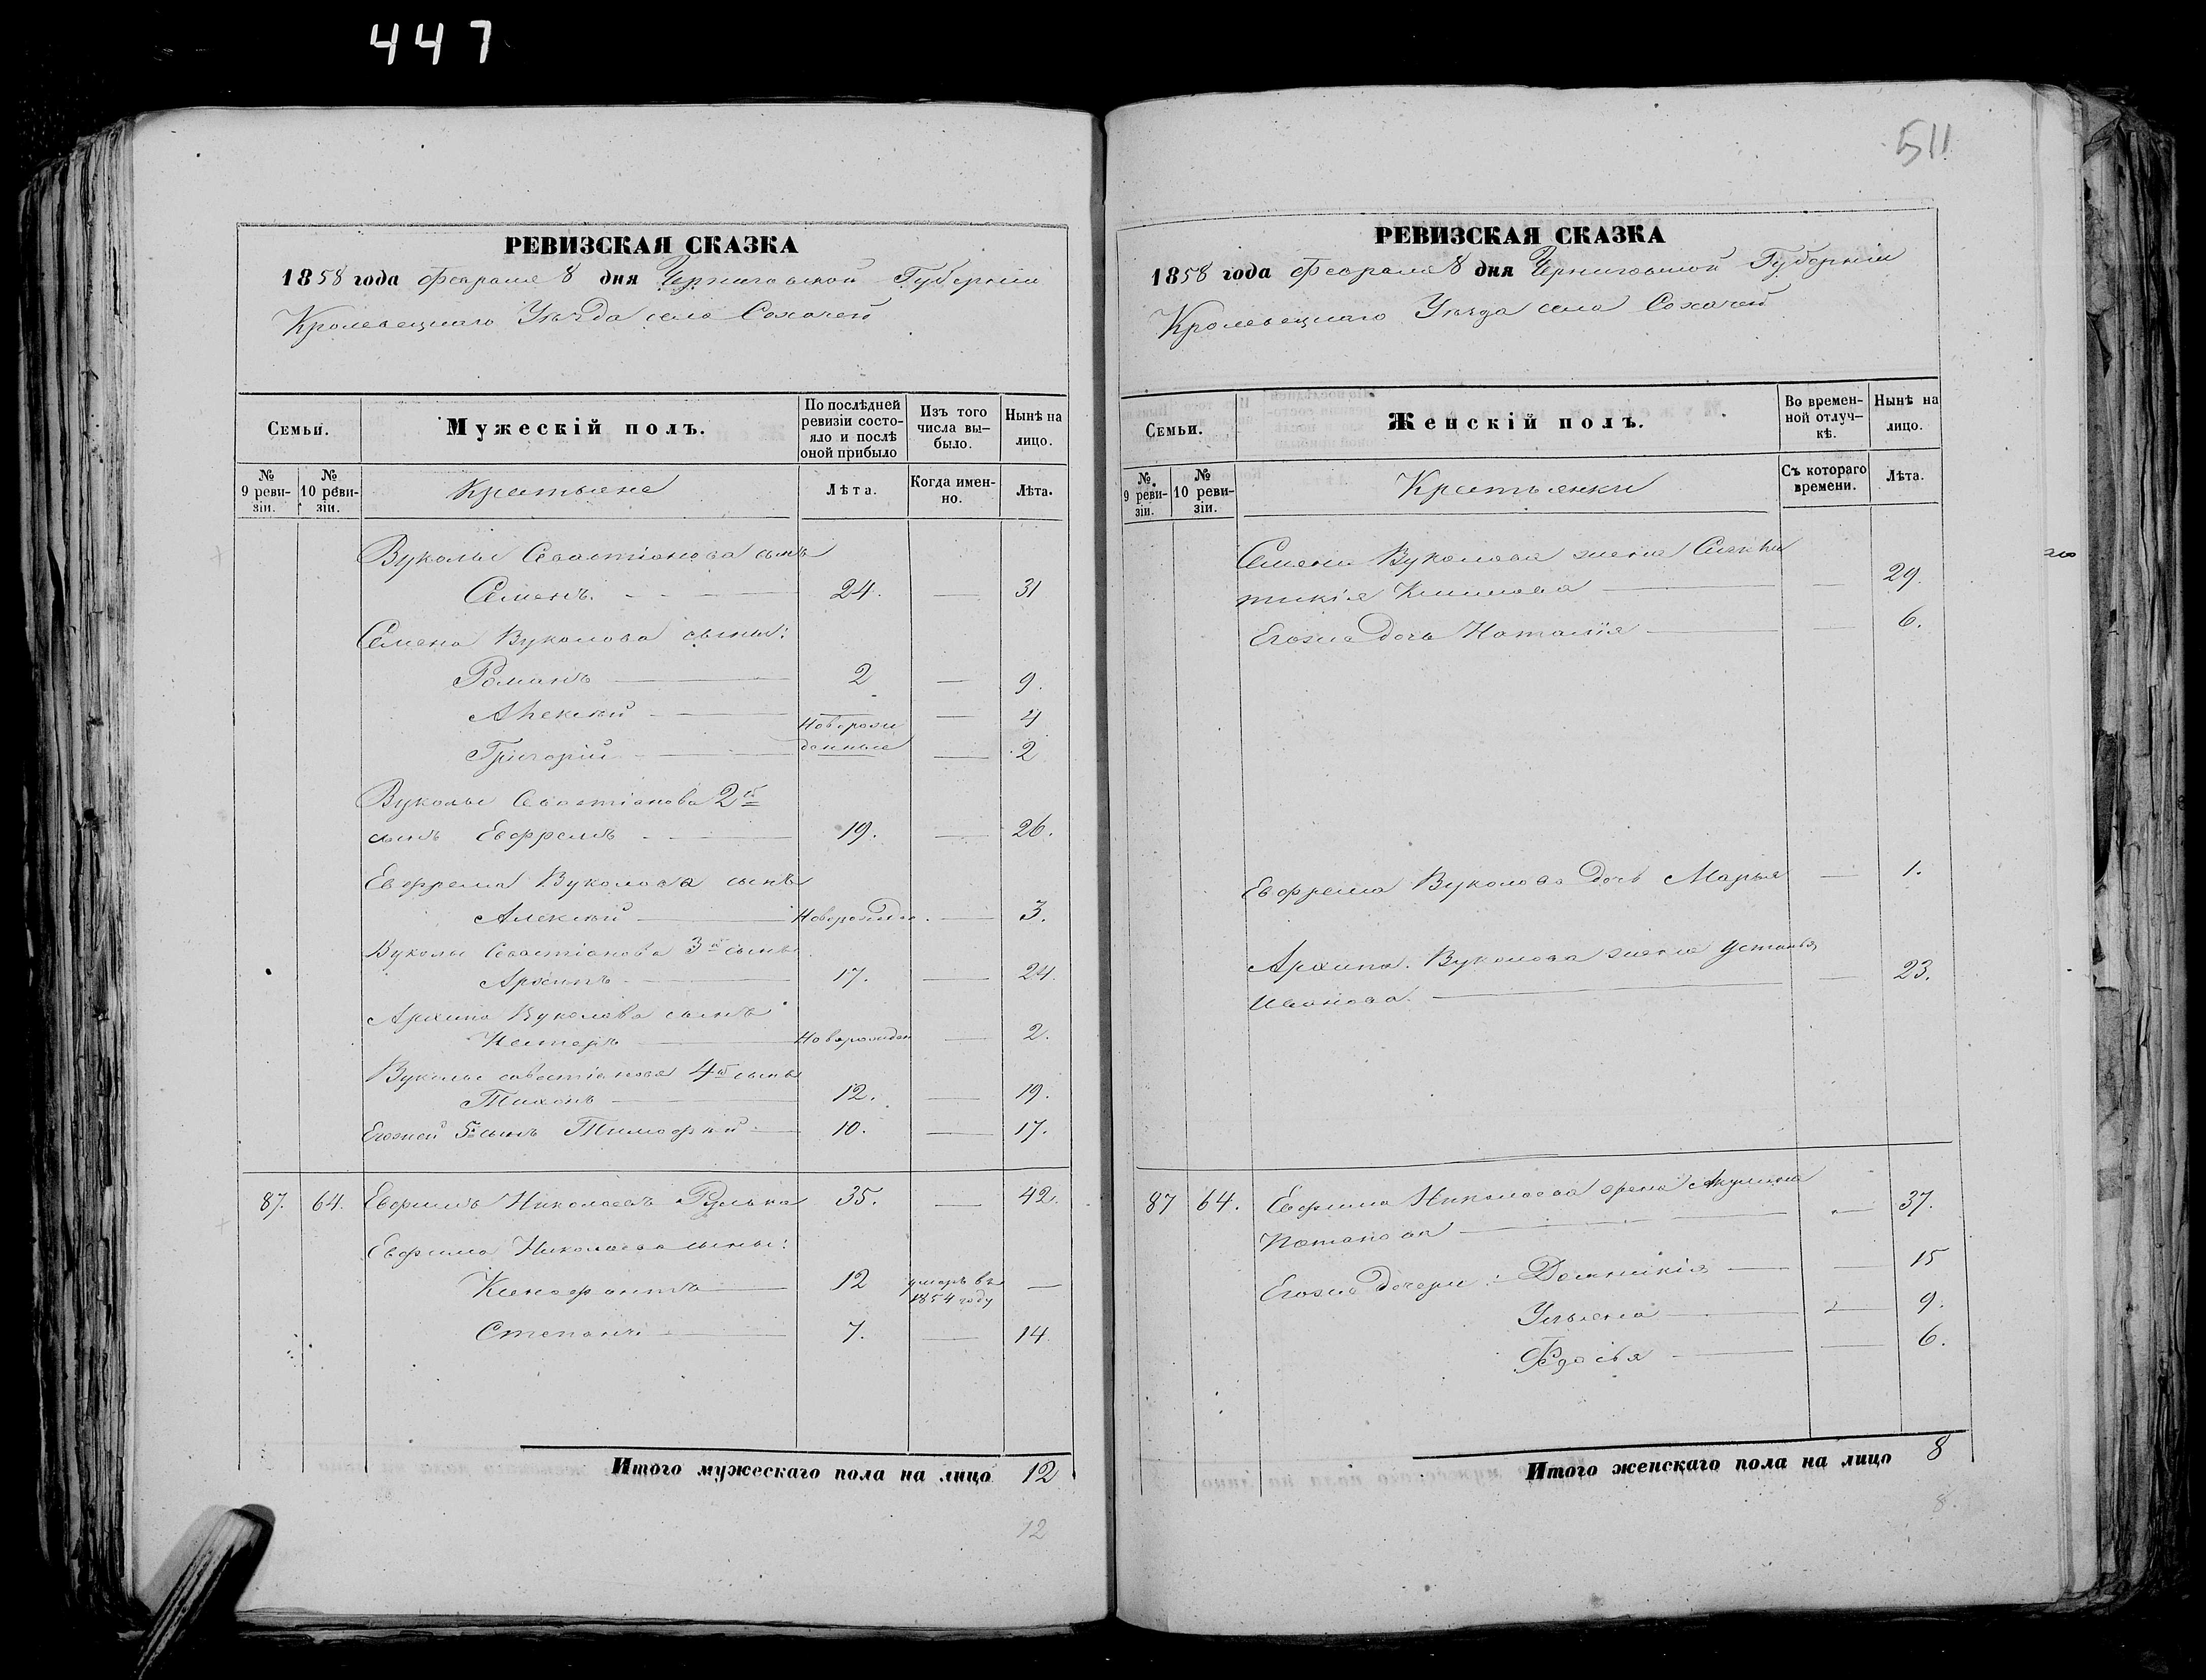 447
511
РЕВИЗСКАЯ СКАЗКА
1858 года Февраля 8 дня Черниговской Губерніи
Кролевецкаго Уѣзда села Сохачей
Семьи.
Мужескій полъ.
По послѣдней ревизіи состо-
яло и послѣ
оной прибыло
Изъ того
числа вы-
было.
Нынѣ на
лицо.
№
9 реви-
зіи.
№
10 реви-
зіи.
Крестьяне
Лѣта.
Когда имен-
но.
Лѣта.
Вуколы Севастіанова сынъ
Семенъ. 24. — 31
Семена Вуколова сыны:
Романъ 2 — 9.
Алексѣй Новорож — 4
Григорій денные — 2
Вуколы Севастіанова 2й
сынъ Евфремъ 19. — 26.
Евфрема Вуколова сынъ
Алексѣй Новорожден. — 3.
Вуколы Севастіанова 3й сынъ
Архипъ 17. — 24.
Архипа Вуколова сынъ
Несторъ Новорожден — 2.
Вуколы Севастіанова 4й сынъ
Тихонъ 12. — 19.
Его жъ 5й сынъ Тимофѣй 10. — 17.
87. 64. Евфимъ Николаевъ 35. — 42.
Евфима Николаева сыны:
Ксенофонтъ 12 умеръ въ —
1854 году
Степанъ 7. — 14.
Итого мужескаго пола на лицо 12
12
РЕВИЗСКАЯ СКАЗКА
1858 года Февраля 8 дня Черниговской Губерніи
Кролевецкаго Уѣзда села Сохачей
Семьи.
Женскій полъ.
Во времен-
ной отлуч-
кѣ.
Нынѣ на
лицо.
№
9 реви-
зіи.
№
10 реви-
зіи.
Крестьянки
Съ котораго
времени.
Лѣта.
Семена Вуколова жена Синкли
тикія — 29.
Его же дочь Наталія — 6.
Евфрема Вуколова дочь Марья — 1.
Архипа Вуколова жена Устинья
Иванова — 23.
87 64. Евфима Николаева жена Акулина
Потапова — 37.
Его же дочери: Домникія — 15
Ульяна — 9.
Федосья — 6.
Итого женскаго пола на лицо 8
8.